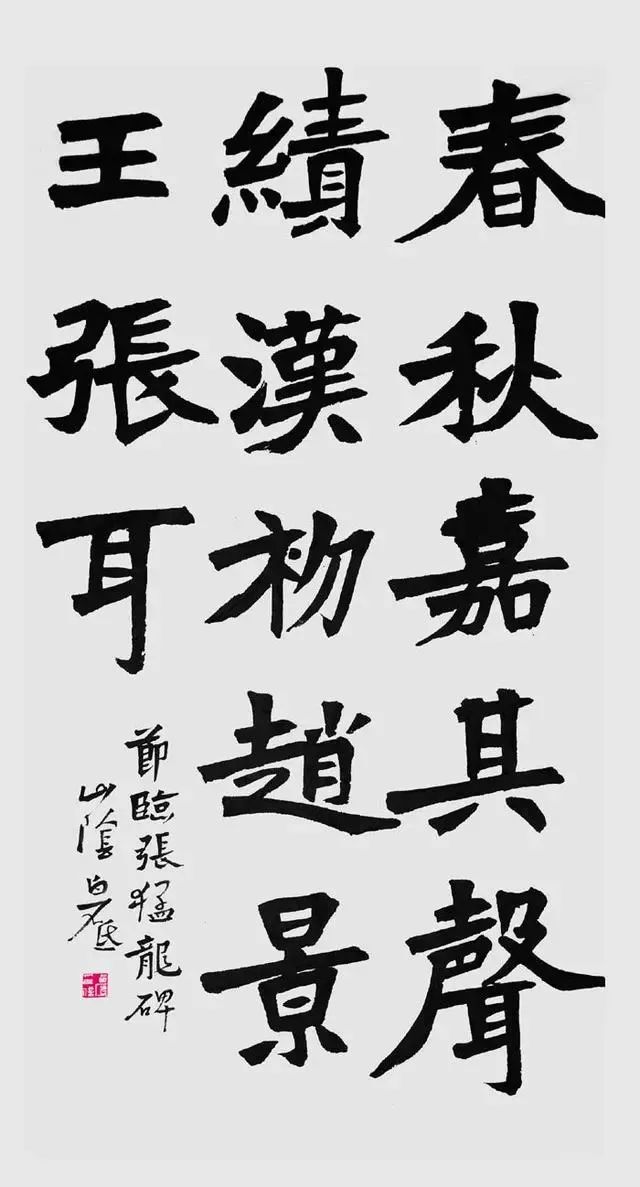 春秋嘉其聲
績漢初趙景
王張耳
節臨張猛龍碑
山陰白砥